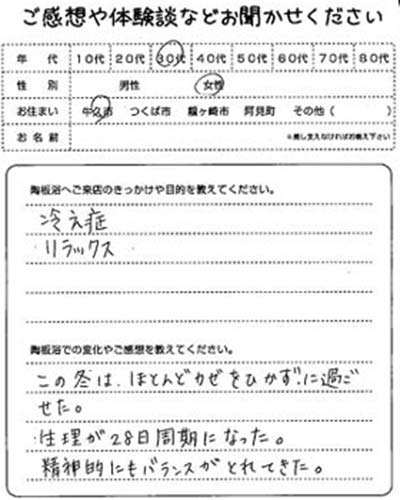 ご感想や体験談などお聞かせください
年代 10代 20代 30代 40代 50代 60代 70代 80代
性別 男性 女性
お住まい 牛久市 つくば市 龍ヶ崎市 阿見町 その他( )
お名前 ※差し支えなければお教え下さい
陶板浴へご来店のきっかけや目的を教えてください。
冷え症
・リラックス
陶板浴での変化やご感想を教えてください。
この冬は、ほとんどカゼをひかず、に過ご
せた。
・生理が28日周期になった。
・精神的にもバランスがとれてきた。